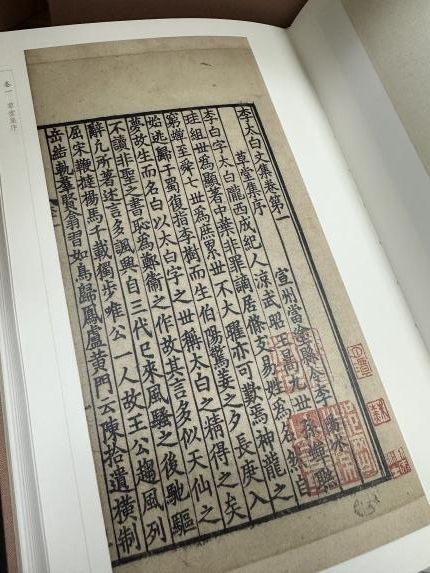 李太白文集卷第一
草堂集序
宣州當塗縣令李陽冰
李白字太白隴西成紀人涼武昭王暠九世孫蟬聯
珪組世為顯著中葉非罪謫居條支易姓為名然自
窮蟬至舜七世為庶累世不大曜亦可歎焉神龍之
始逃歸于蜀復指李樹而生伯陽驚姜之夕長庚入
夢故生而名白以太白字之世稱太白之精得之矣
不讀非聖之書恥為鄭衛之作故其言多似天仙之
辭凡所著述言多諷興自三代已來風騷之後馳驅
屈宋鞭撻揚馬千載獨步唯公一人故王公趨風列
岳結軌羣賢翕習如鳥歸鳳盧黃門云陳拾遺橫制
卷一 草堂集序